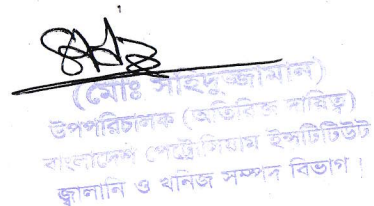 (মোঃ সাহিদুজ্জামান)
উপপরিচালক (অতিরিক্ত দায়িত্ব)
বাংলাদেশ পেট্রোলিয়াম ইন্সটিটিউট
জ্বালানি ও খনিজ সম্পদ বিভাগ।